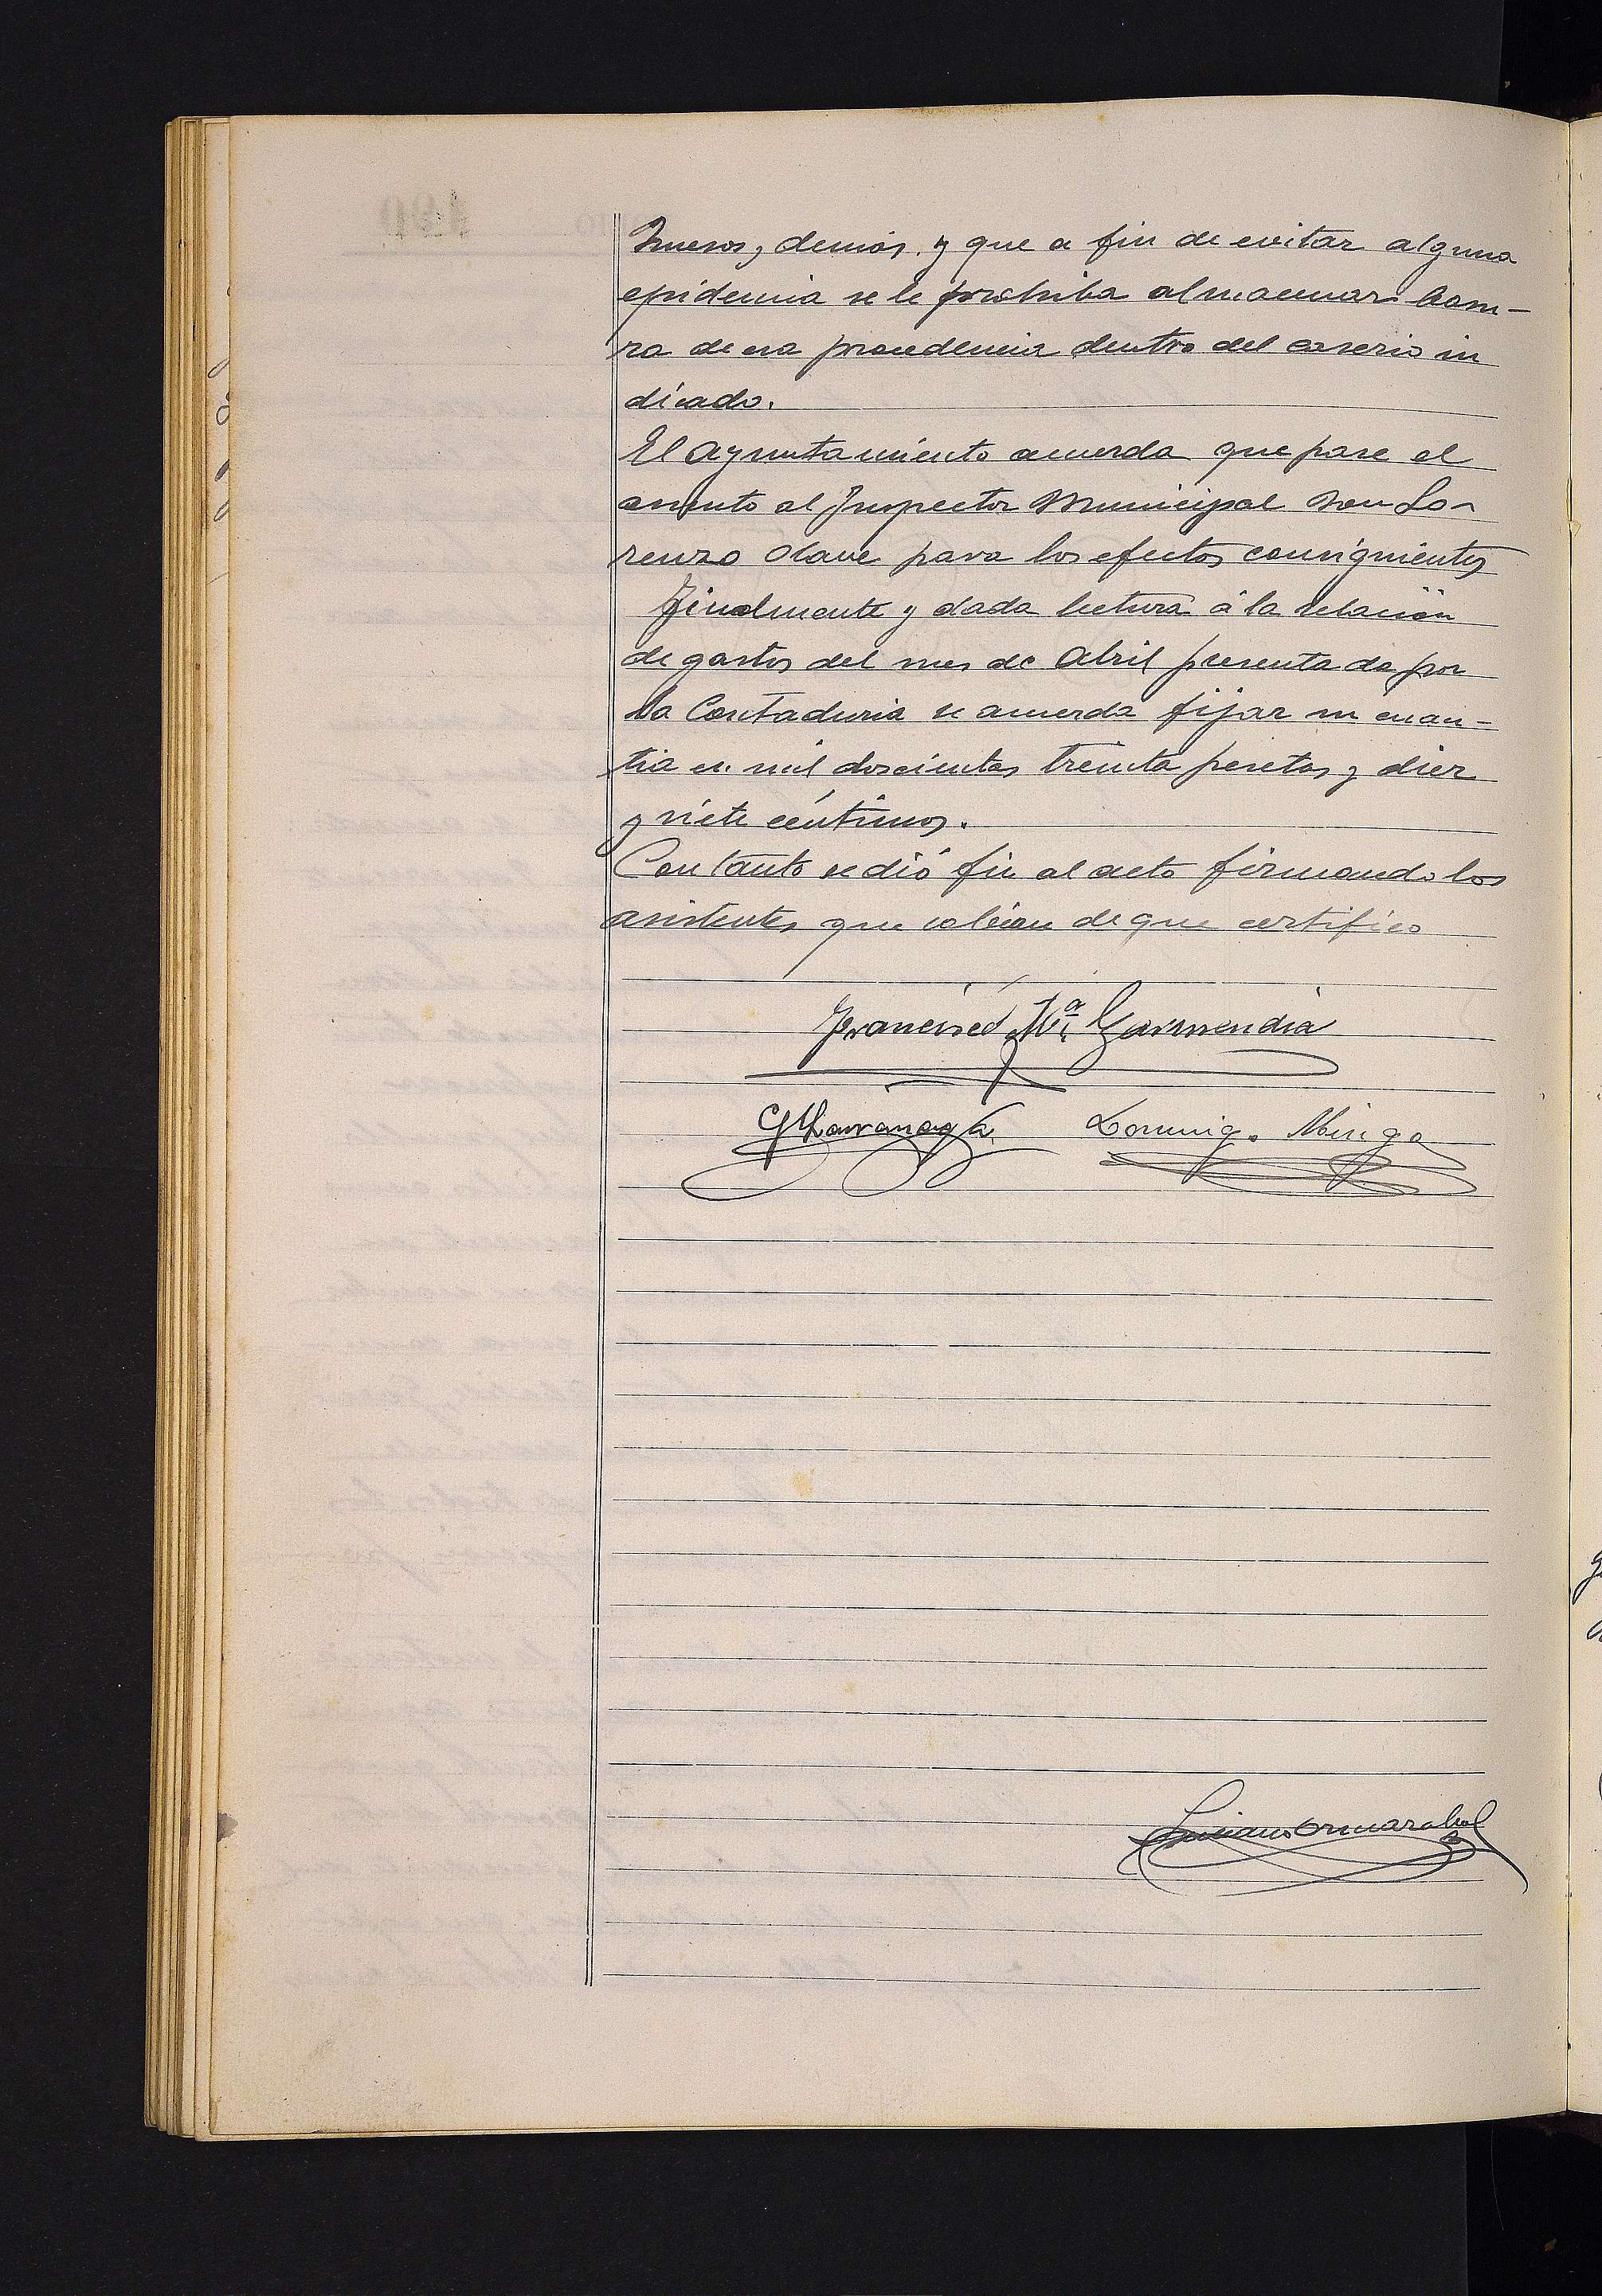 huesos, demás, y que a fin de evitar alguna
epidemia se le prohiba almacenar basu-
ra de esa procedencia dentro del caserio in
dicado.
El Ayuntamiento acuerda que pase el
asunto al Inspector Municipal Don Lo-
renzo Olave para los efectos consiguientes
Finalmente y dada lectura á la relación
de gastos del mes de Abril presentada por
la Contaduria se acuerda fijar su cuan-
tia en mil doscientas treinta pesetas y diez
y siete céntimos.
Con tanto se dió fin al acto firmando los
asistentes que sabian de que certifico
Francisco Mª Garmendia
Domingo Minga
Luciano Ormazabal